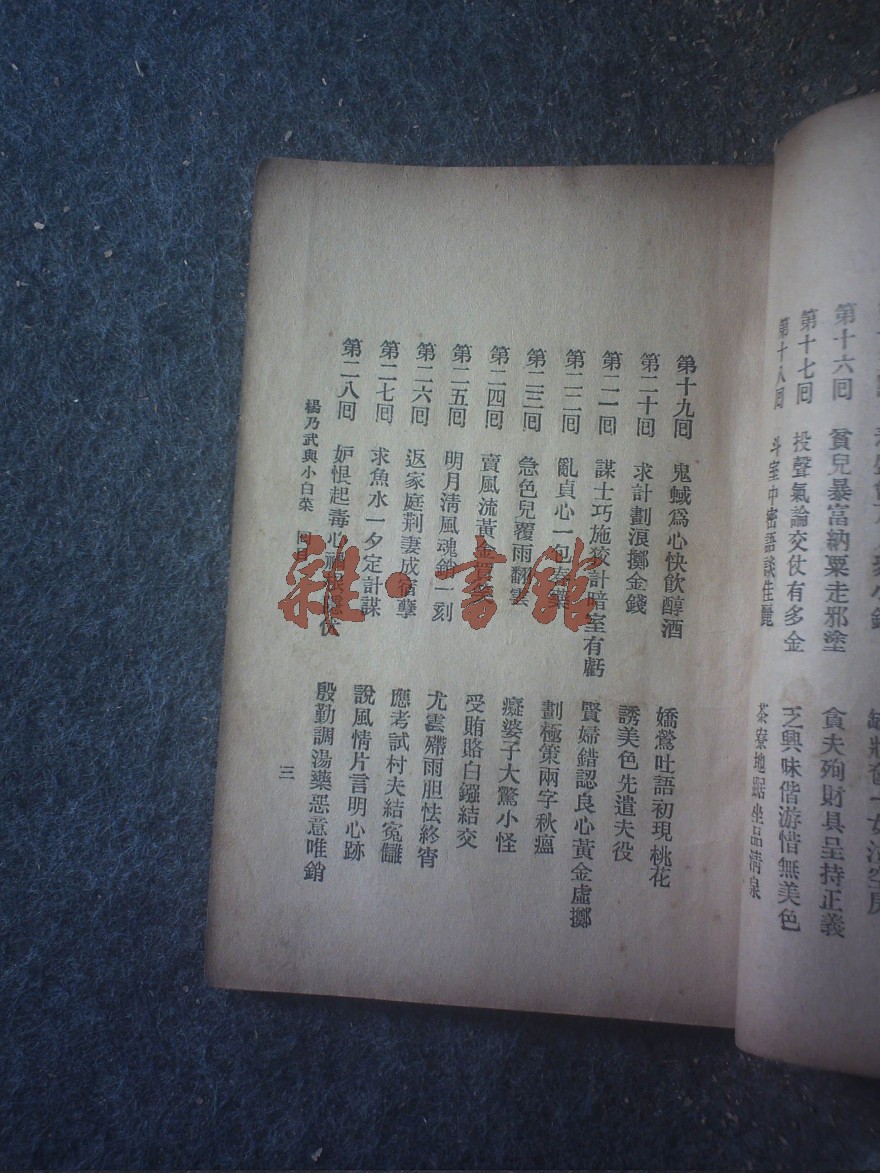 第十六回 貧兒暴富納粟走邪塗 貪夫殉財具呈持正義
第十七回 投聲氣論交仗有多金 乏興味偕游惜無美色
第十八回 斗室中密語談佳麗 茶寮地踞坐品清泉
第十九回 鬼蜮爲心快飲醇酒 嬌鶯吐語初現桃花
第二十回 求計劃浪擲金錢 誘美色先遣夫役
第二一回 謀士巧施狡計暗室有虧 賢婦錯認良心黃金虛擲
第二二回 亂貞心一包藥 劃極策兩字秋瘟
第二三回 急色兒覆雨翻雲 癡婆子大驚小怪
第二四回 賣風流黃金買 受賄賂白鏹結交
第二五回 明月清風魂銷一刻 尤雲殢雨胆怯終宵
第二六回 返家庭荆妻成宿孽 應考試村夫結冤讎
第二七回 求魚水一夕定計謀 說風情片言明心跡
第二八回 妒恨起毒心禍伏 殷勤調湯藥惡意唯銷
楊乃武與小白菜 回目 三
雜·書館